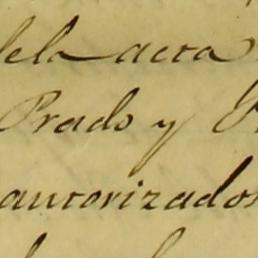 dela acta
Prado y
autorizados